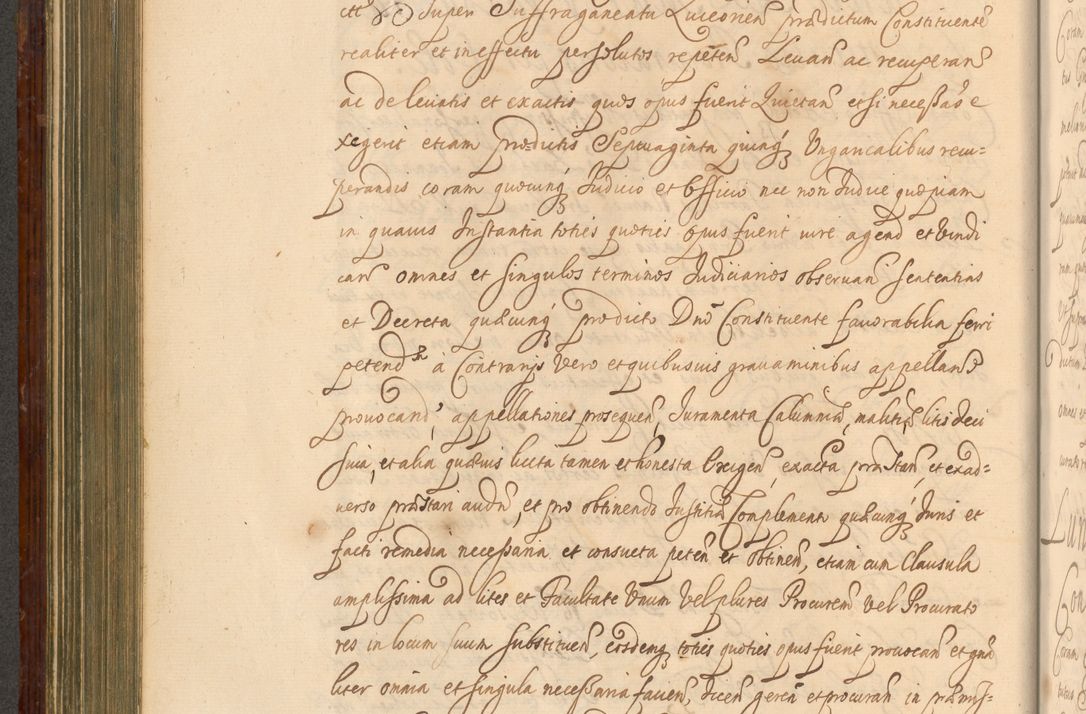 ctt Super Suffraganeatu Luceorien prædictum Constituente
realiter et in effectu persolutos repeten Levan ac recuperan
ac de levatis et exactis quos opus fuerit Quietan et si necessao e
xegerit etiam prædictis Septuaginta quinq Ungaricalibus recu-
perandis coram quocunq Judicio et Officio nec non Judice quopiam
in quavis Instantia toties quoties opus fuerit iure agend et Vindi
can omnes et singulos terminos Judiciarios observan sententias
et Decreta quæcunq prædicto Dno Constituente favorabilia ferri
petend à Contrarijs Vero et quibusvis gravaminibus appelland
provocand, appellationes prosequen, Juramenta Calumniæ, malitiæ, litis deci
suia, et alia quævis licita tamen et honesta Exigen, exacta præstan, et exad-
verso præstari audn, et pro obtinendo Justitiæ Complemento quæcunq Juris et
facti remedia necessaria et consueta peten et obtinen, etiam cum Clausula
amplissima ad lites et Facultate Unum Vel plures Procurem Vel Procurato
res in locum suum substituen, eosdemq toties quoties opus fuerit provocan et gna
liter omnia et singula necessaria facien, dicen geren et procuran in præmis-